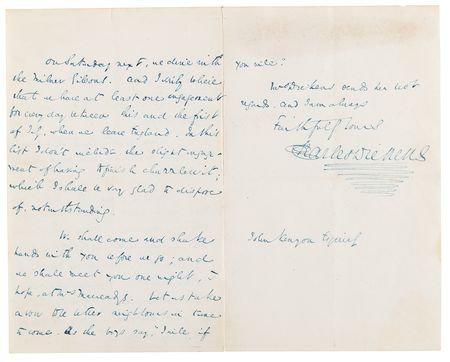 On Saturday next, we dine with
the Milner Gibsons. And I verily believe
that we have at least one engagement
for every day between this and the first
of July, when we leave England. In this
list I don't include the slight engage-
ment of having to finish Chuzzlewit;
which I shall be very glad to dispose
of, notwithstanding.
We shall come and shake
hands with you before we go; and
we shall meet you one night, I
hope, at Mrs Macready's. Let us take
a vow to be better neighbours in time
to come. As the boys say, "I will, if
you will?"
Mrs Dickens sends her best
regards. And I am always
Faithfully Yours
Charles Dickens
John Kenyon Esquire